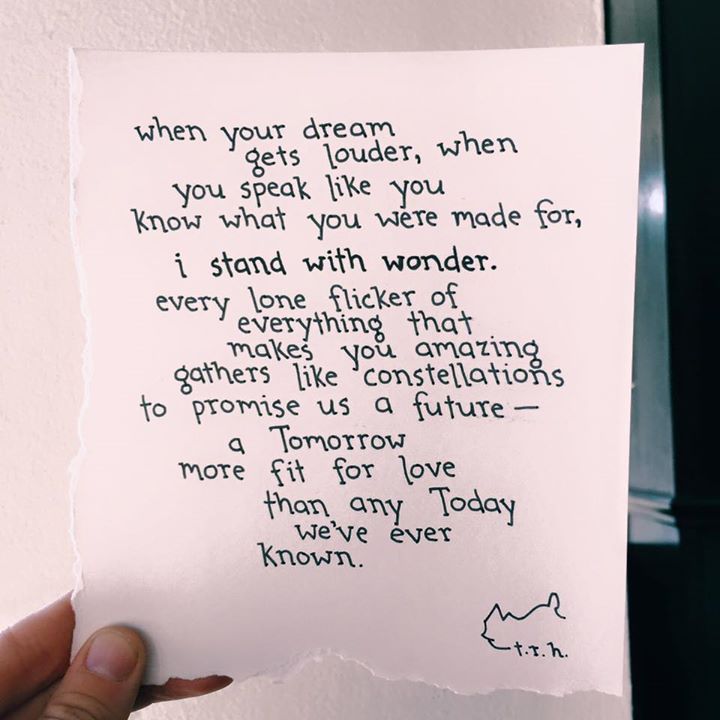 when your dream
gets louder, when
you speak like you
know what you were made for,
i stand with wonder.
every lone flicker of
everything that
makes you amazing
gathers like constellations
to promise us a future —
a Tomorrow
more fit for love
than any Today
we've ever
known.
t.r.h.